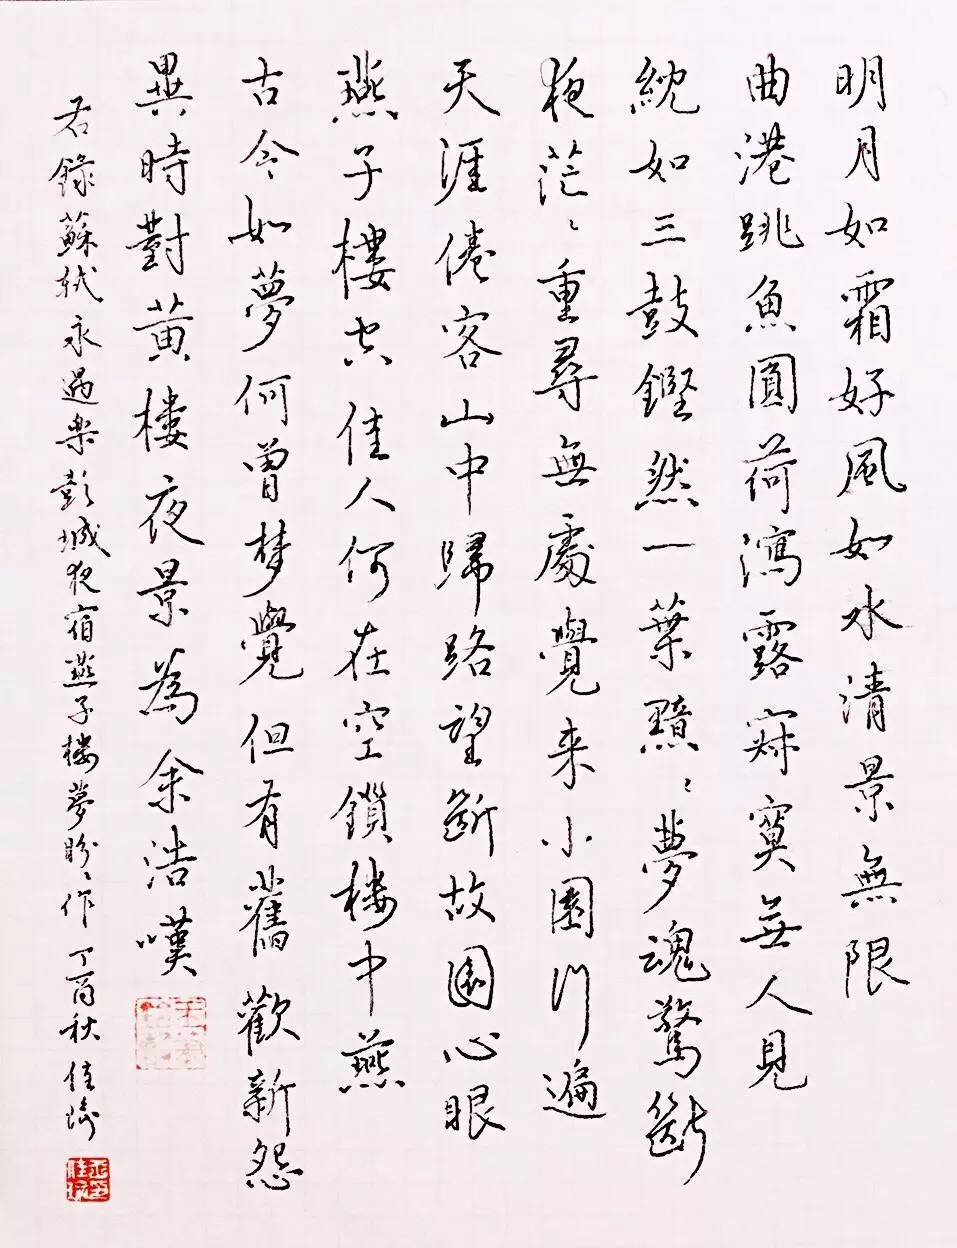 明月如霜好風如水清景無限
曲港跳魚圓荷瀉露寂寞無人見
紞如三鼓鏗然一葉黯〻夢魂驚斷
夜茫〻重尋無處覺来小園行遍
天涯倦客山中歸路望斷故園心眼
燕子樓空佳人何在空鎖樓中燕
古今如夢何曾梦覺但有舊歡新怨
異時對黄樓夜景為余浩嘆
右錄蘇軾永遇樂彭城夜宿燕子樓夢盼〻作丁酉秋佳